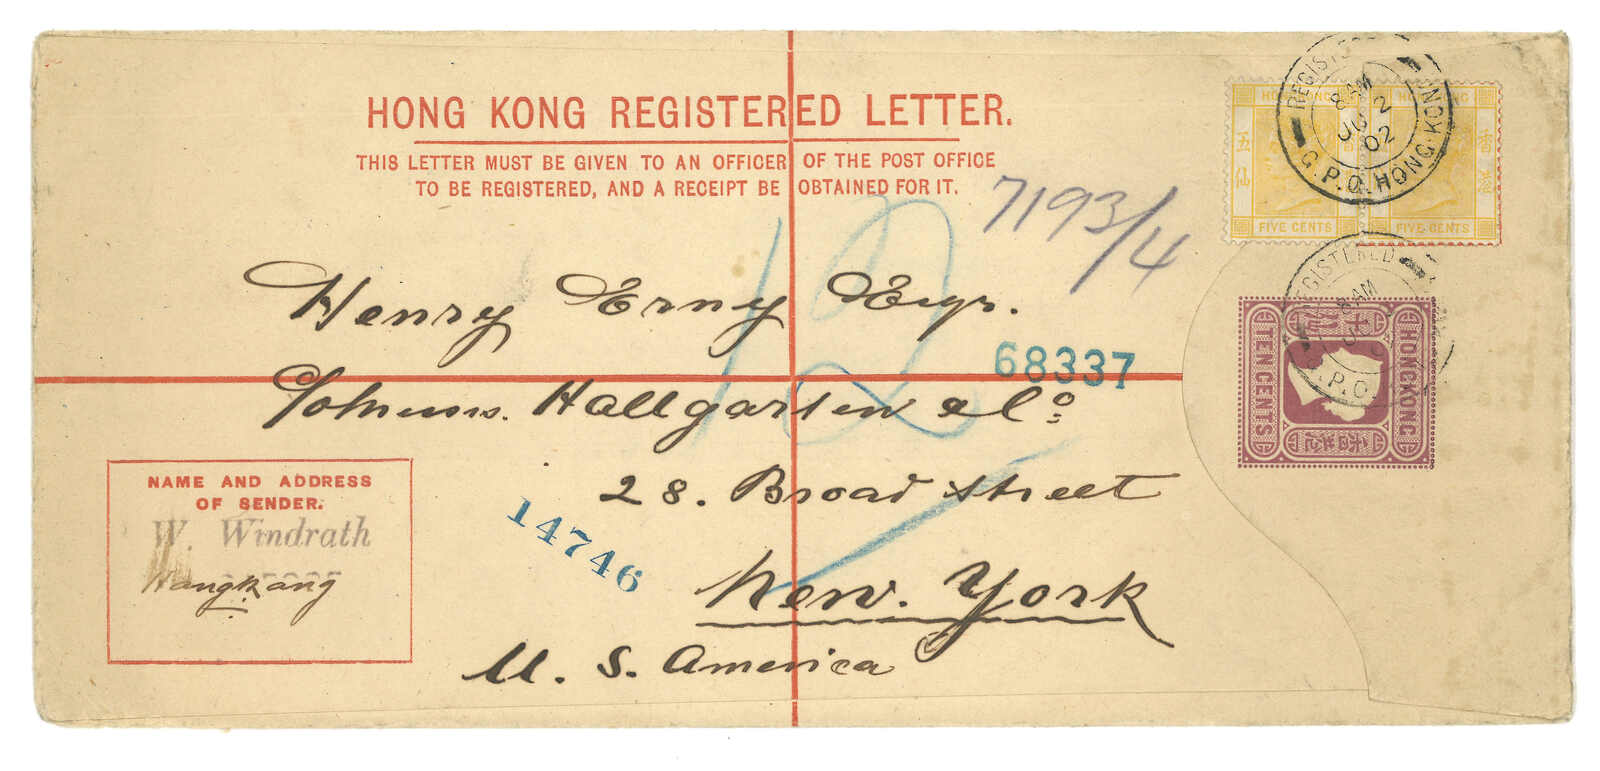 HONG KONG REGISTERED LETTER.
THIS LETTER MUST BE GIVEN TO AN OFFICER OF THE POST OFFICE
TO BE REGISTERED, AND A RECEIPT BE OBTAINED FOR IT.
7193/4
12
Henry Erny Esqr.
68337
Hallgarten & Co
28. Broad Street
14746
New. York
U. S. America
NAME AND ADDRESS
OF SENDER.
W. Windrath
Hongkong
五仙
FIVE CENTS
香港
FIVE CENTS
REGISTERED
8 AM
2
02
G.P.O. HONG KONG
REGISTERED
8 AM
P.O.
TEN CENTS
HONGKONG